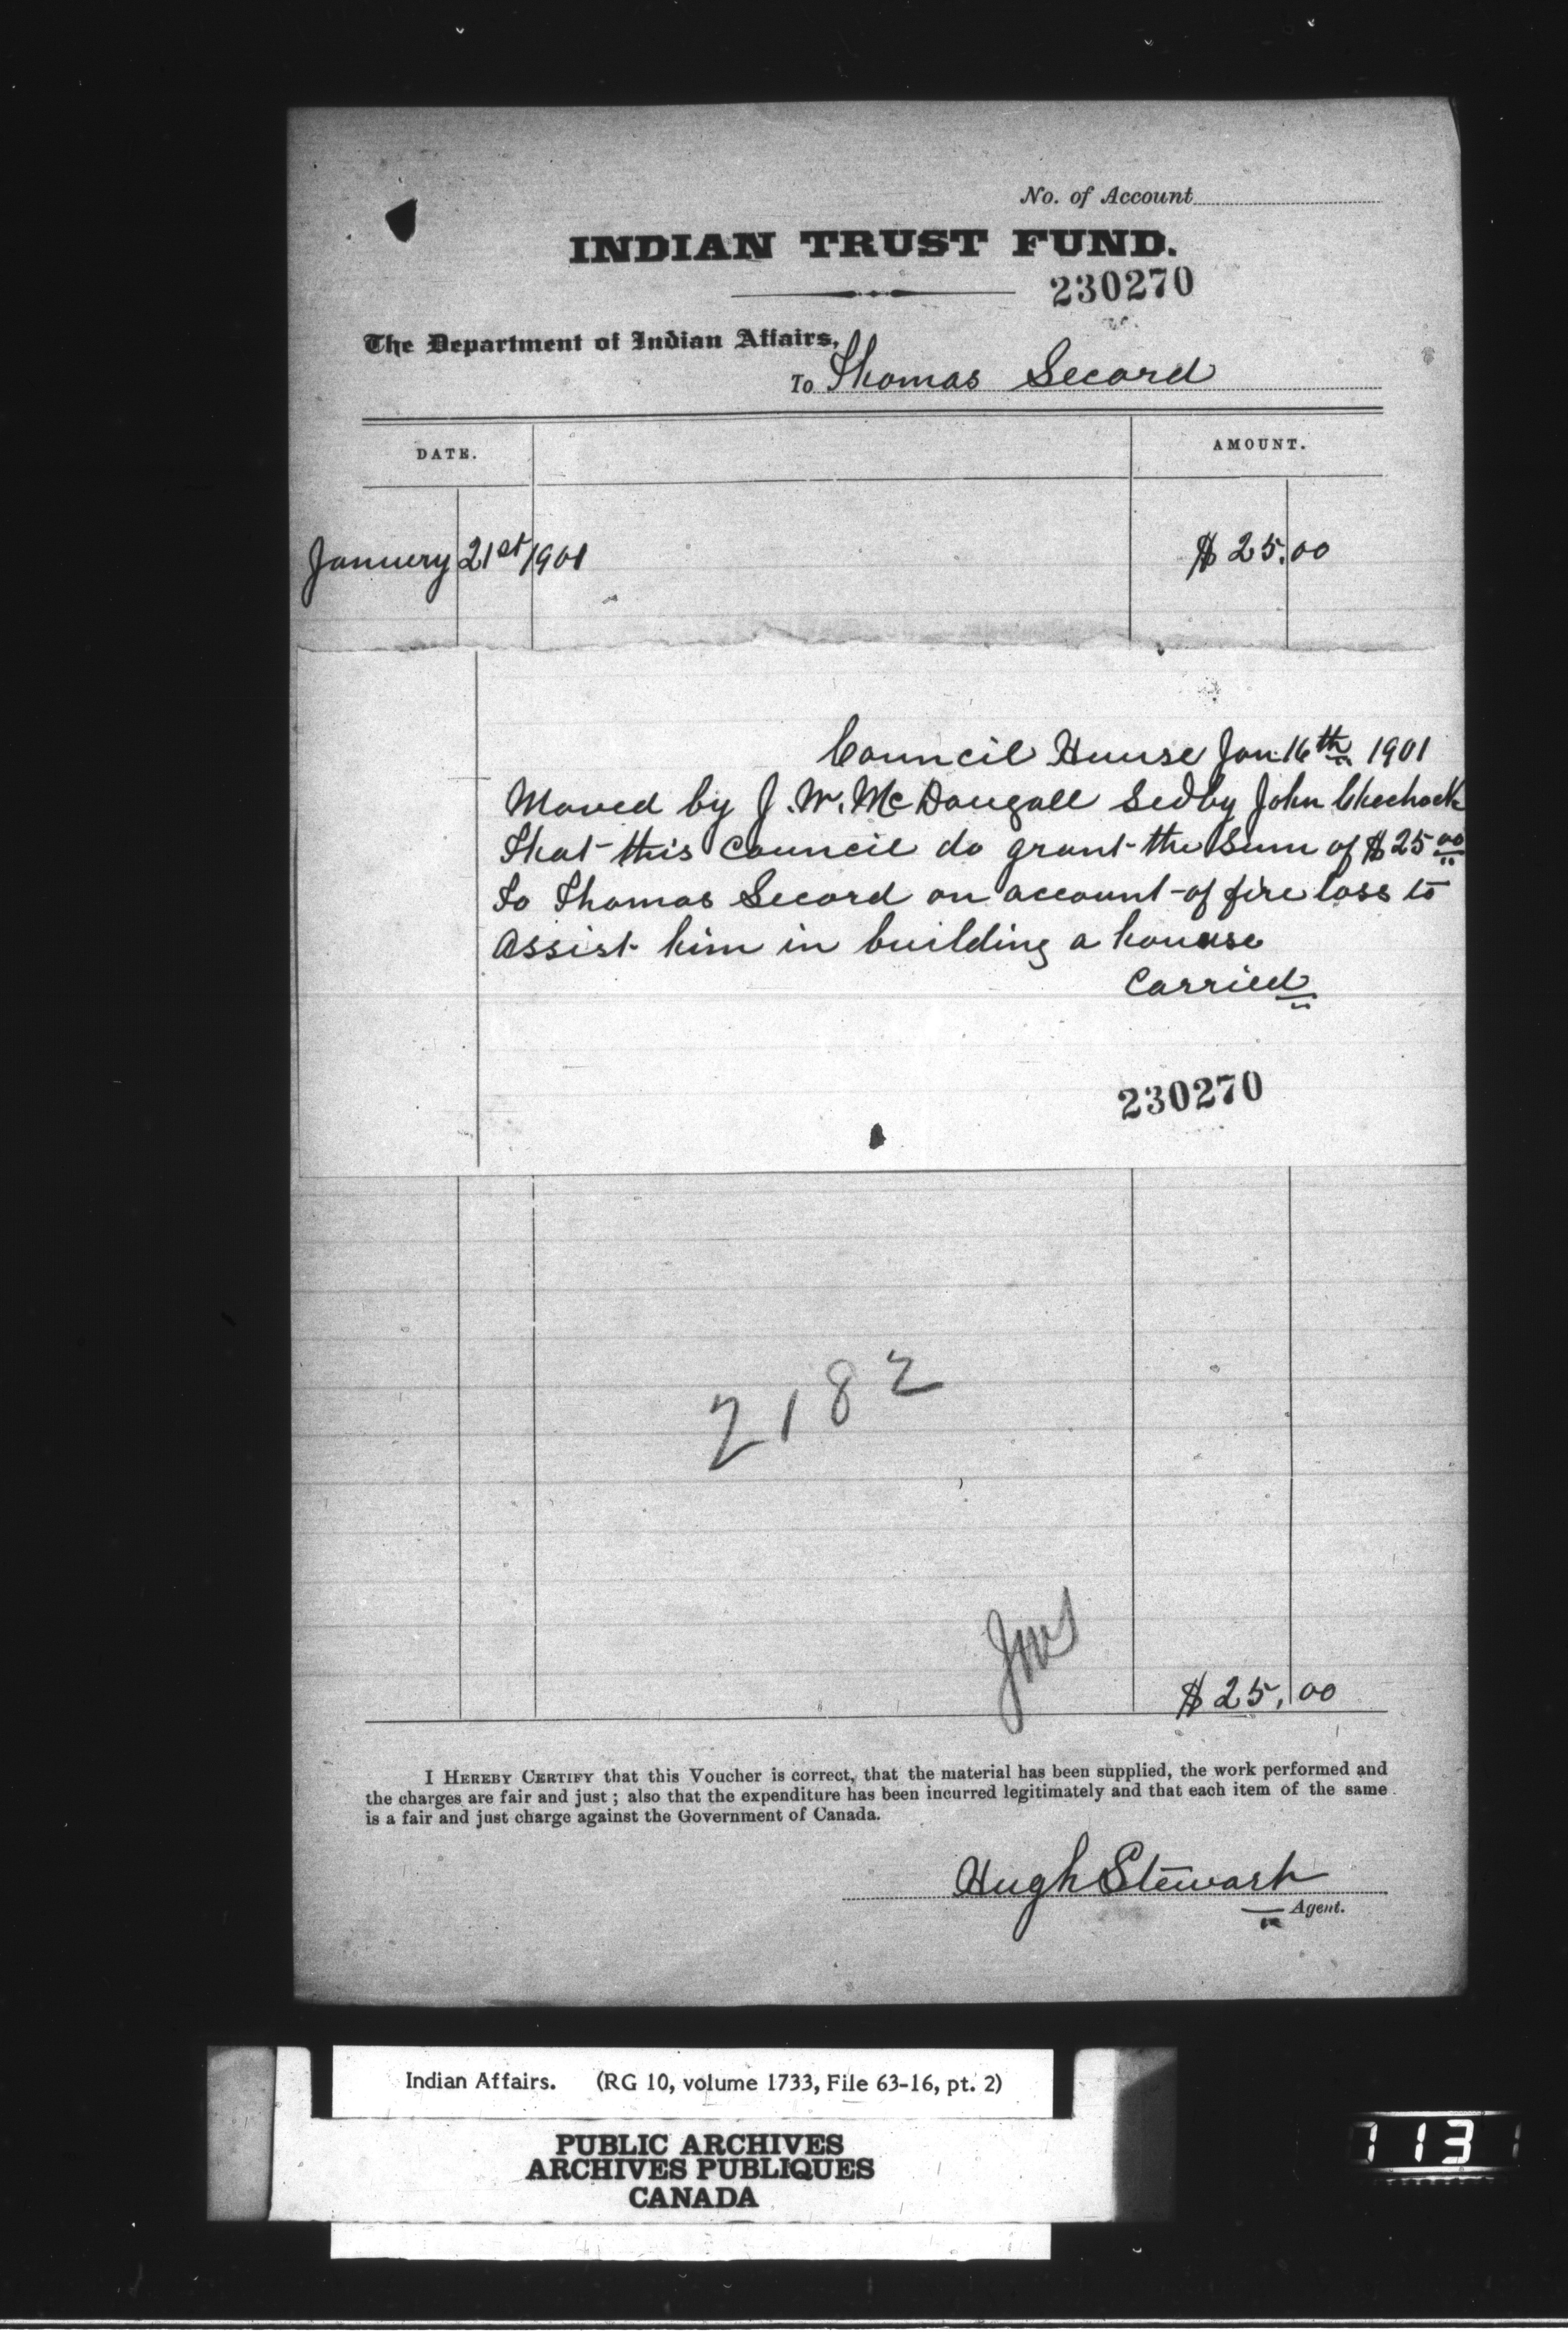 No. of Account
INDIAN TRUST FUND.
230270
The Department of Indian Affairs,
To Thomas Secord
DATE.
AMOUNT.
January 21st 1901
$ 25.00
Council House Jan 16th 1901
Moved by J. W. McDougall Secd by John Chechock
That this Council do grant the Sum of $ 25 00
To Thomas Secord on account of fire loss to
assist him in building a house
Carried
230270
2182
$ 25.00
I HEREBY CERTIFY that this Voucher is correct, that the material has been supplied, the work performed and
the charges are fair and just ; also that the expenditure has been incurred legitimately and that each item of the same
is a fair and just charge against the Government of Canada.
Hugh Stewart
Agent.
Indian Affairs. (RG 10, volume 1733, File 63-16, pt. 2)
PUBLIC ARCHIVES
ARCHIVES PUBLIQUES
CANADA
113